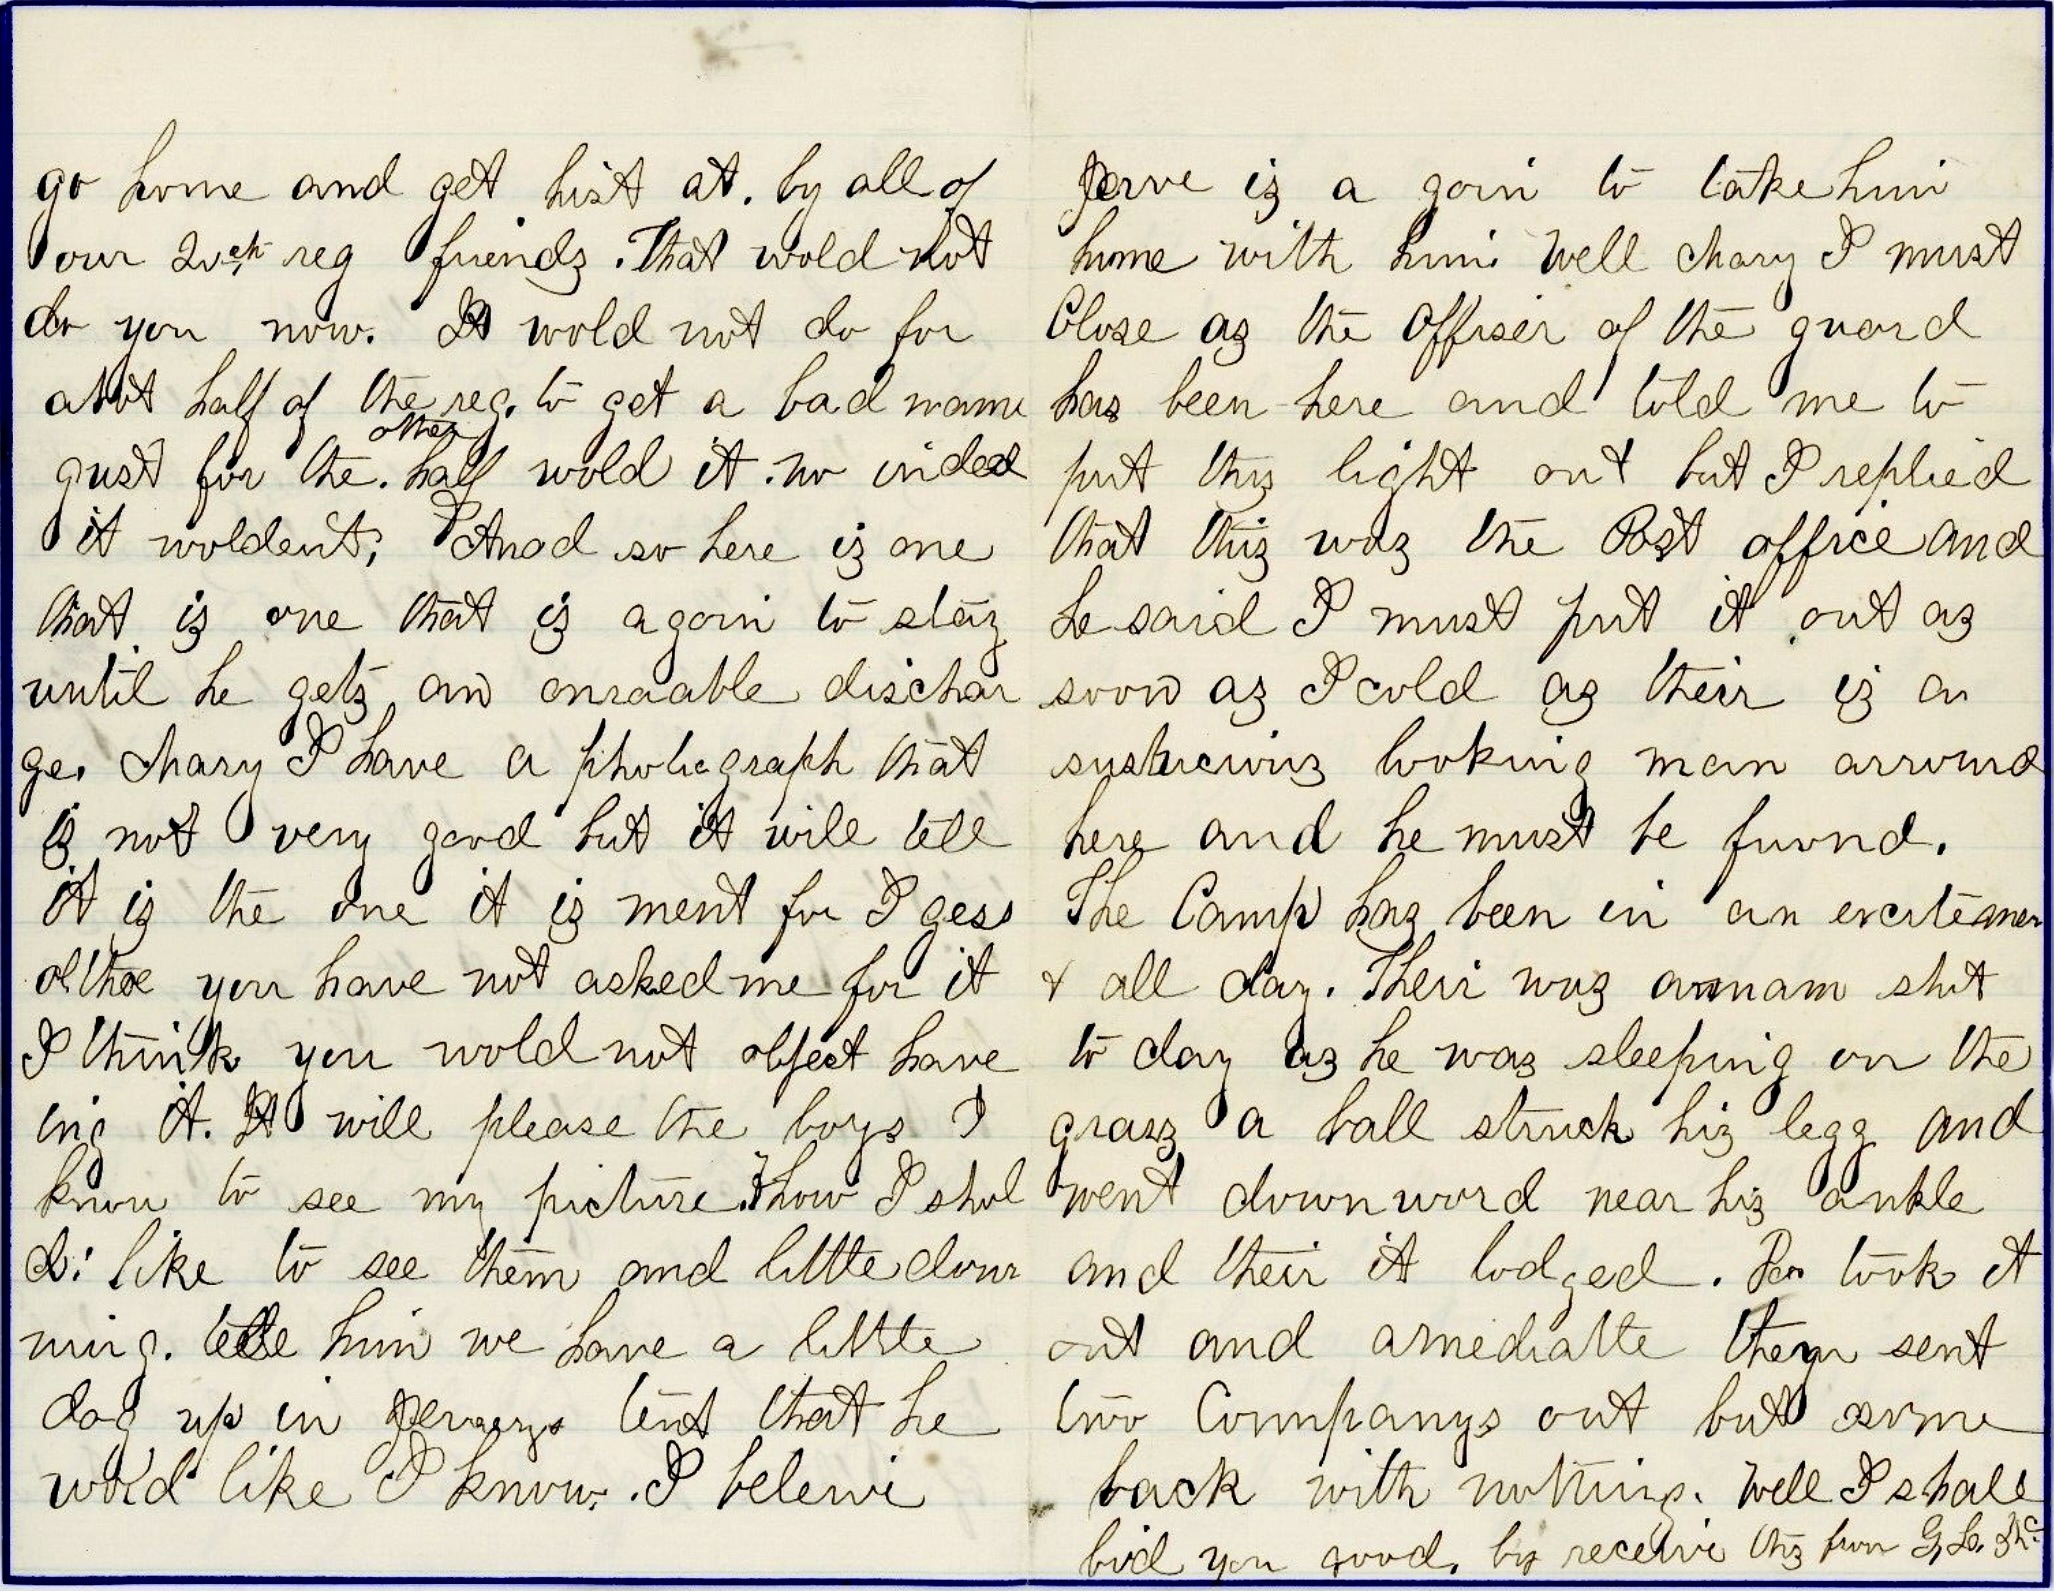 go home and get hist at. by all of
our 20eth reg friends. That wold not
do you now. It wold not do for
abot half of the reg. to get a bad name
gust for the other half wold it. no indeed
it woldent; And so here is one
that is one that is agoin to stay
until he gets an onraable dischar
ge. Mary I have a photograph that
is not very good but it will tell
it is the one it is ment for I gess
altho you have not asked me for it
I think you wold not object have
ing it. It will please the boys I
know to see my picture. how I shol
d: like to see them and little down
ning. tell him we have a little
dog up in tent that he
wold like I know. I beleive
Jerve is a goin to take him
home with him. Well Mary I must
Close as the Offiser of the guard
has been here and told me to
put this light out but I replied
that this was the Post office and
he said I must put it out as
soon as I cold as their is a
looking man arround
here and he must be fuond.
The Camp has been in an excitemen
t all day. Their was a man shot
to day as he was sleeping on the
grass a ball struck his legg and
went downword near his ankle
and their it lodged. took it
out and amediatte they sent
two Companys out but come
back with nothing. Well I shall
bid you good. by receive this from G, Lo.